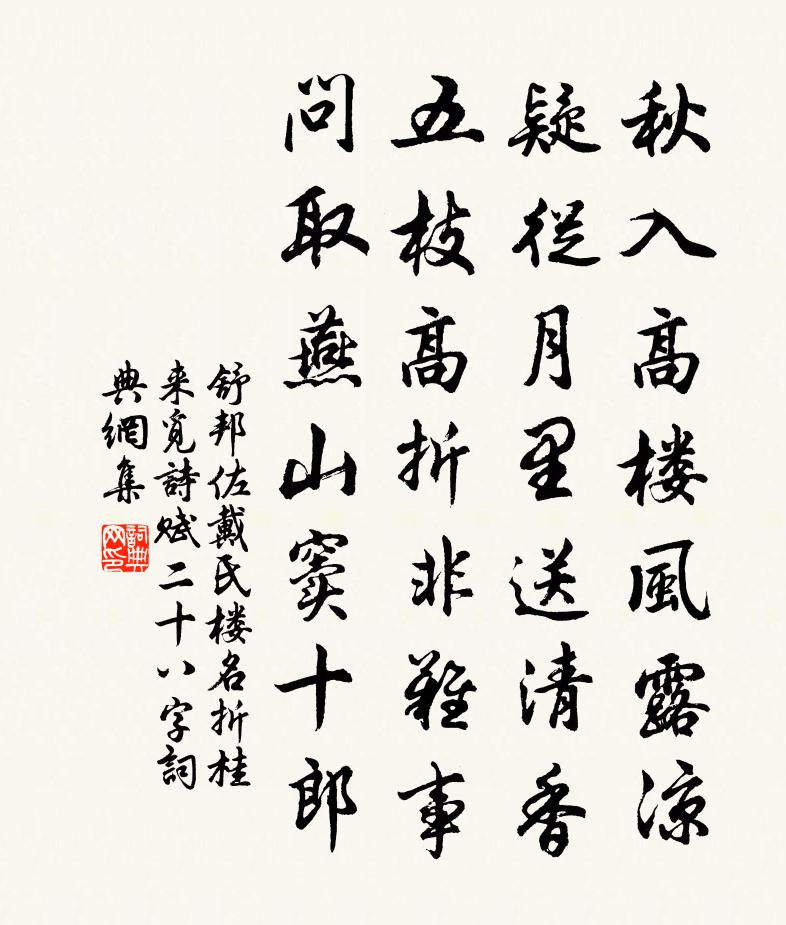 秋入高楼風露涼
疑從月里送清香
五枝高折非難事
問取燕山竇十郎
舒邦佐戴氏楼名折桂
来覓詩賦二十八字詞
典網集
詞典网印